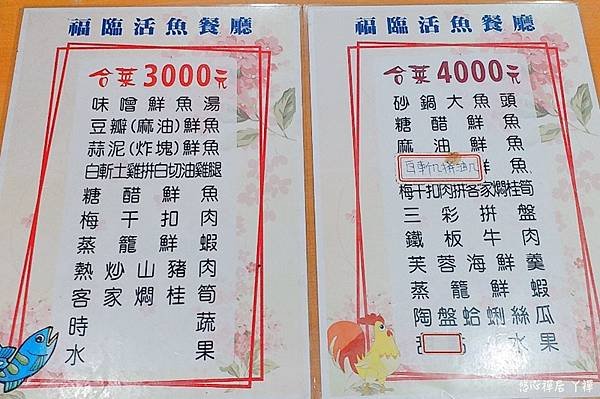 福臨活魚餐廳
合菜3000元
味噌鮮魚湯
豆瓣(麻油)鮮魚
蒜泥(炸塊)鮮魚
白斬土雞拼白切油雞腿
糖醋鮮魚
梅干扣肉
蒸籠鮮蝦
熱炒山豬肉
客家燜桂筍
時蔬
水果
福臨活魚餐廳
合菜4000元
砂鍋大魚頭
糖醋鮮魚
麻油鮮魚
鮮魚
梅干扣肉拼客家燜桂筍
三彩拼盤
鐵板牛肉
芙蓉海鮮羹
蒸籠鮮蝦
陶盤蛤蜊絲瓜
水果
悠心禪居 丫禪